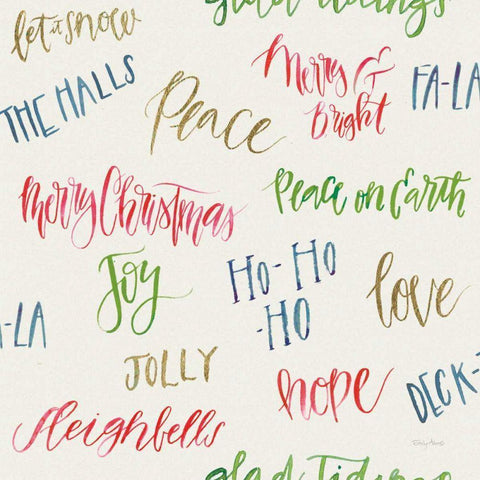 glad tidings
let it snow
Merry &
Bright
FA-LA
THE HALLS
Peace
Merry Christmas
Peace on Earth
Joy
HO-HO
-HO
love
-LA
JOLLY
hope
DECK-
Sleighbells
glad Tidings